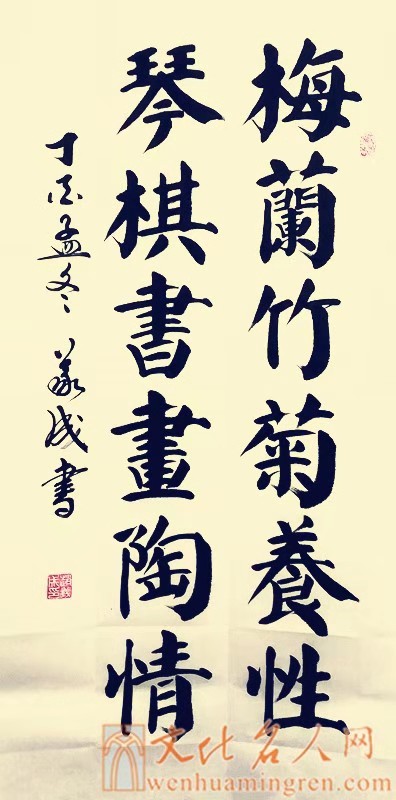 梅蘭竹菊養性
琴棋書畫陶情
丁酉孟冬 義成書
文化名人网
wenhuamingren.com